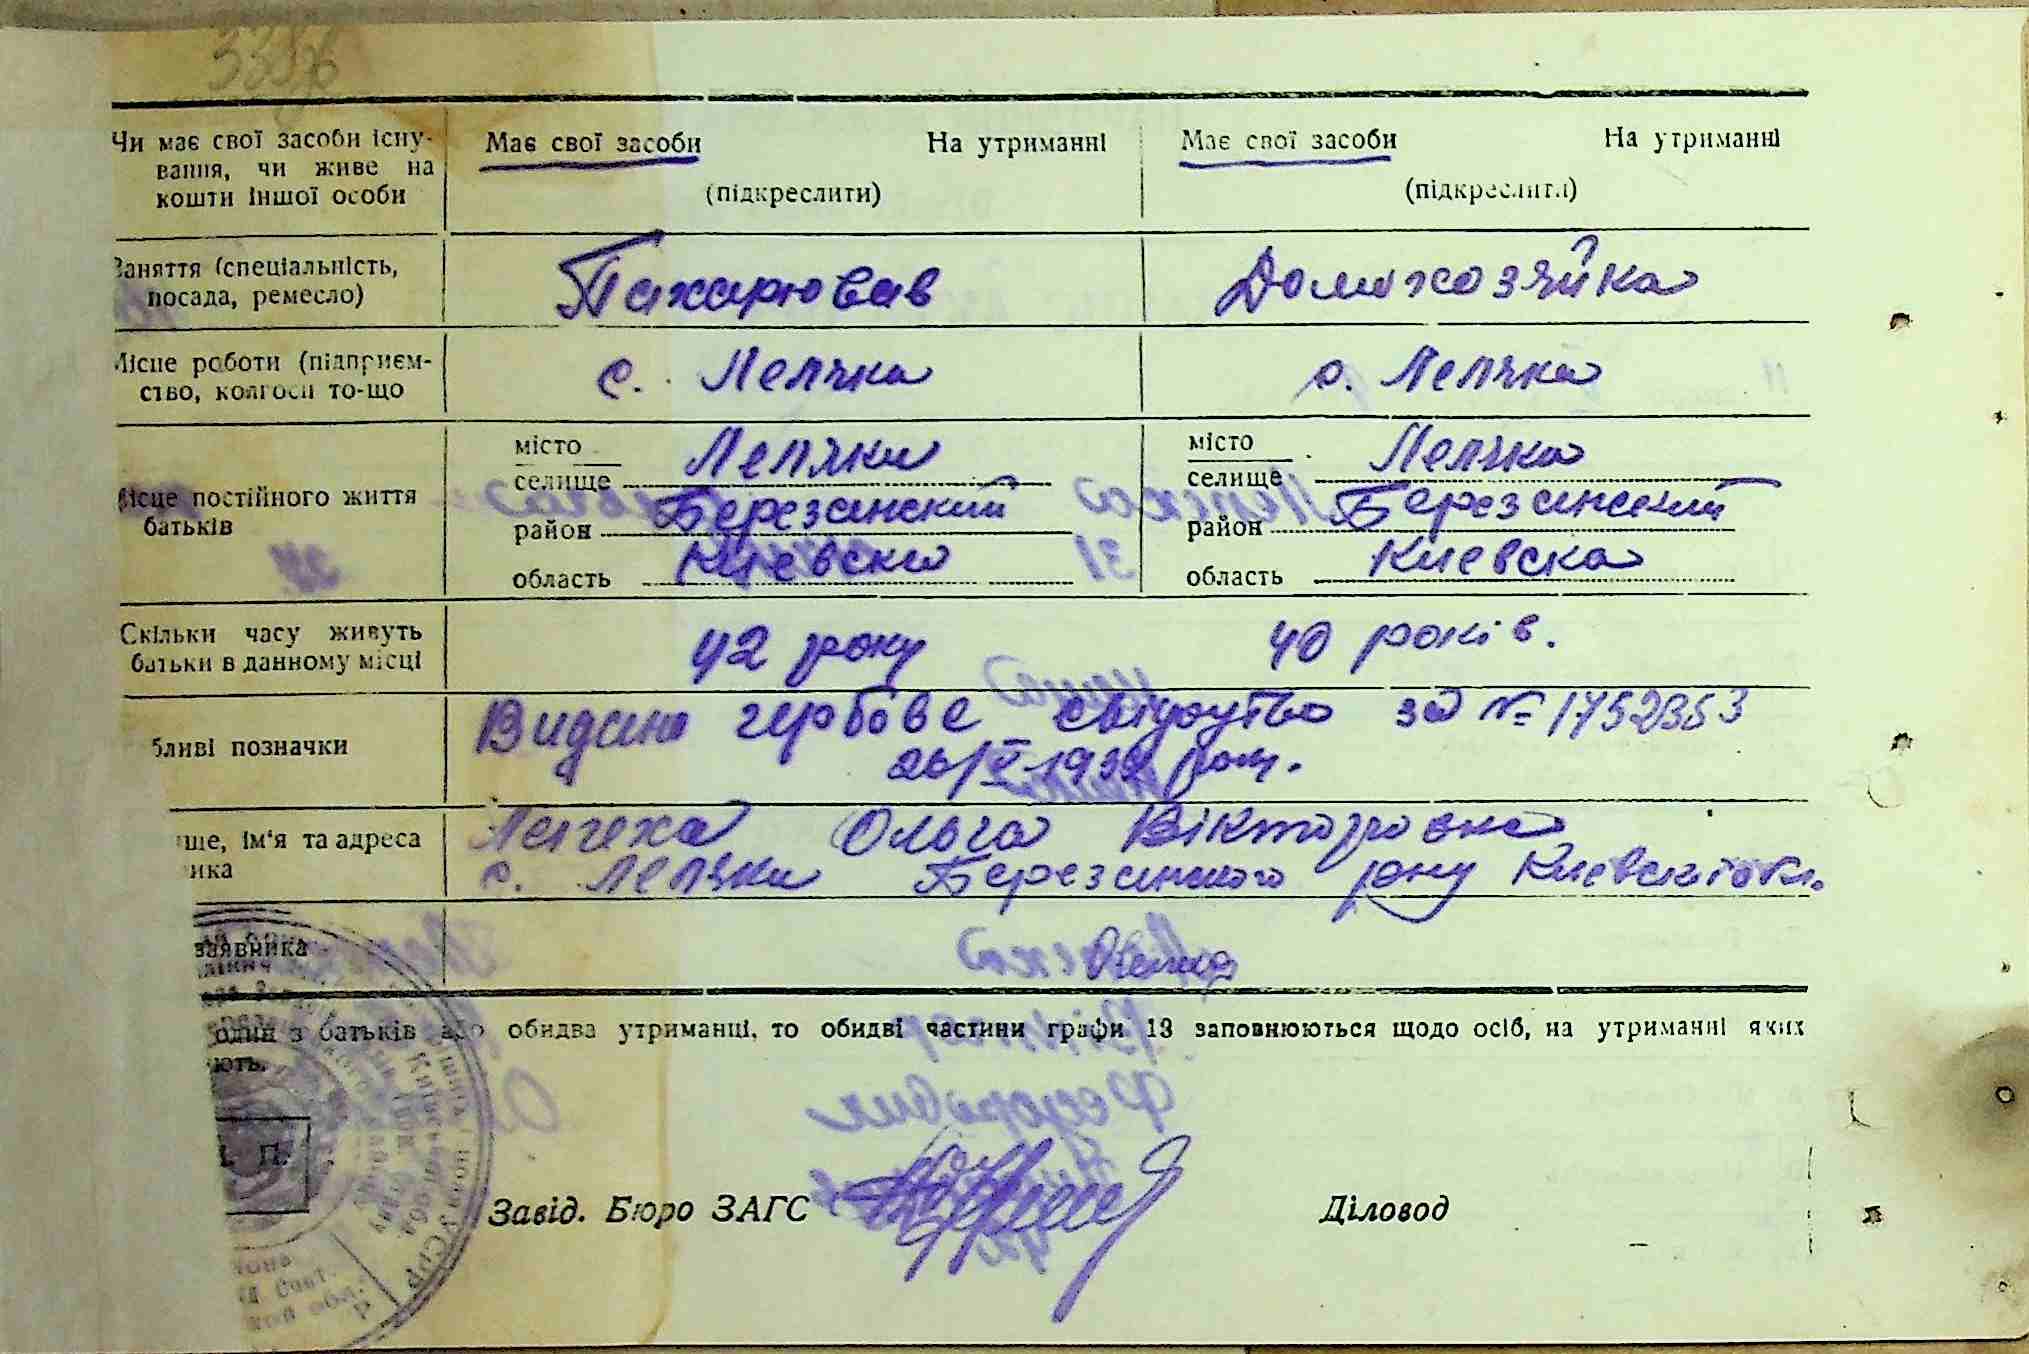 Чи має свої засоби існу- Має свої засоби На утриманні Має свої засоби На утриманні
вання, чи живе на
кошти іншої особи (підкреслити) (підкреслити)
Заняття (спеціальність, Пахарював Домохозяйка
посада, ремесло)
Місце роботи (підприєм- с. Лепяки с. Лепяки
ство, колгосп то-що
місто Лепяки місто Лепяки
селище селище
Місце постійного життя район Березанский район Березанский
батьків
область Киевска область Киевска
Скільки часу живуть 42 року 40 років.
батьки в данному місці
бливі позначки Видано гербове свідоцтво за № 1752353
26/V 1939 року.
ще, ім'я та адреса Ольга Вікторовна
ика с. Лепяки Березанского рону
заявника
один з батьків або обидва утриманці, то обидві частини графи 13 заповнюються щодо осіб, на утриманні яких
ють.
П.
Завід. Бюро ЗАГС Діловод